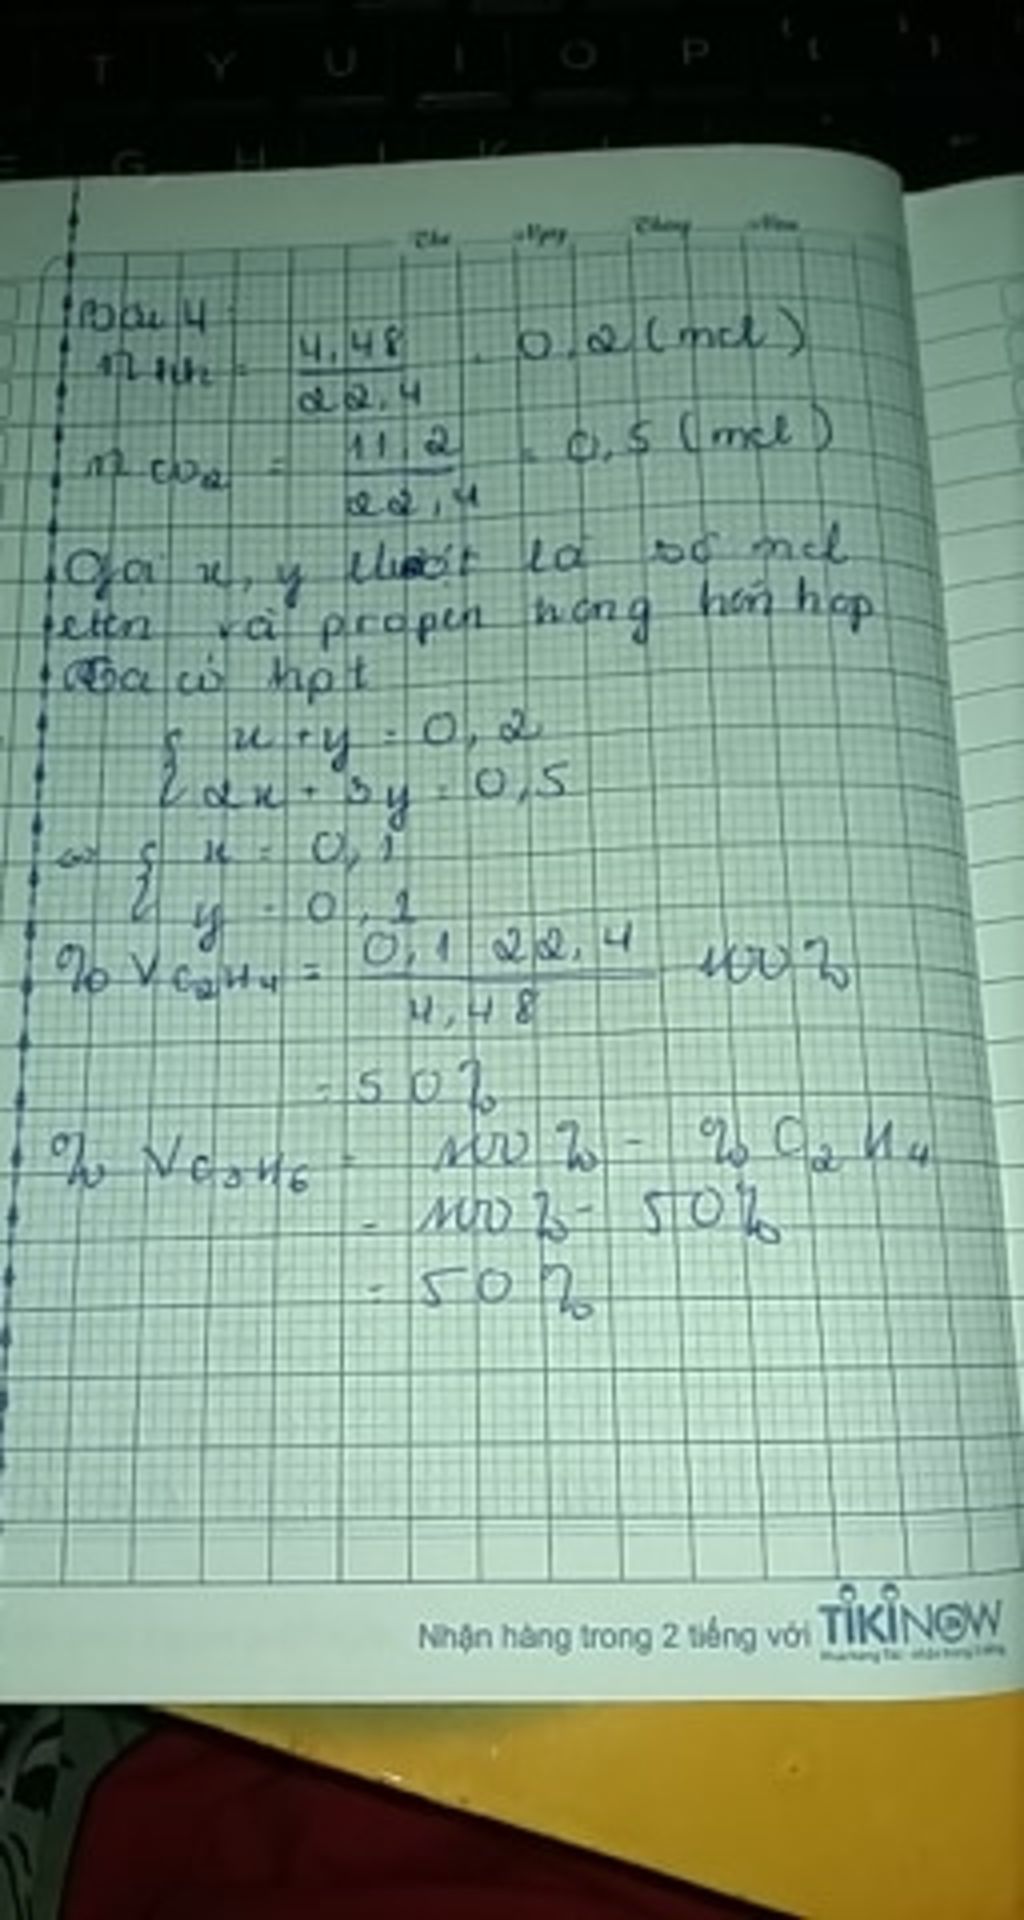 T Y U I O P
G H J K
Thứ Ngày Tháng Năm
Bài 4
n hh = 4,48 / 22,4 = 0,2 (mol)
n CO2 = 11,2 / 22,4 = 0,5 (mol)
Gọi x, y lần lượt là số mol
eten và propen trong hỗn hợp
Ta có hpt
{ x + y = 0,2
{ 2x + 3y = 0,5
<=> { x = 0,1
{ y = 0,1
% V C2H4 = 0,1 22,4 / 4,48 100%
= 50%
% V C3H6 = 100% - % C2H4
= 100% - 50%
= 50%
Nhận hàng trong 2 tiếng với TIKINOW